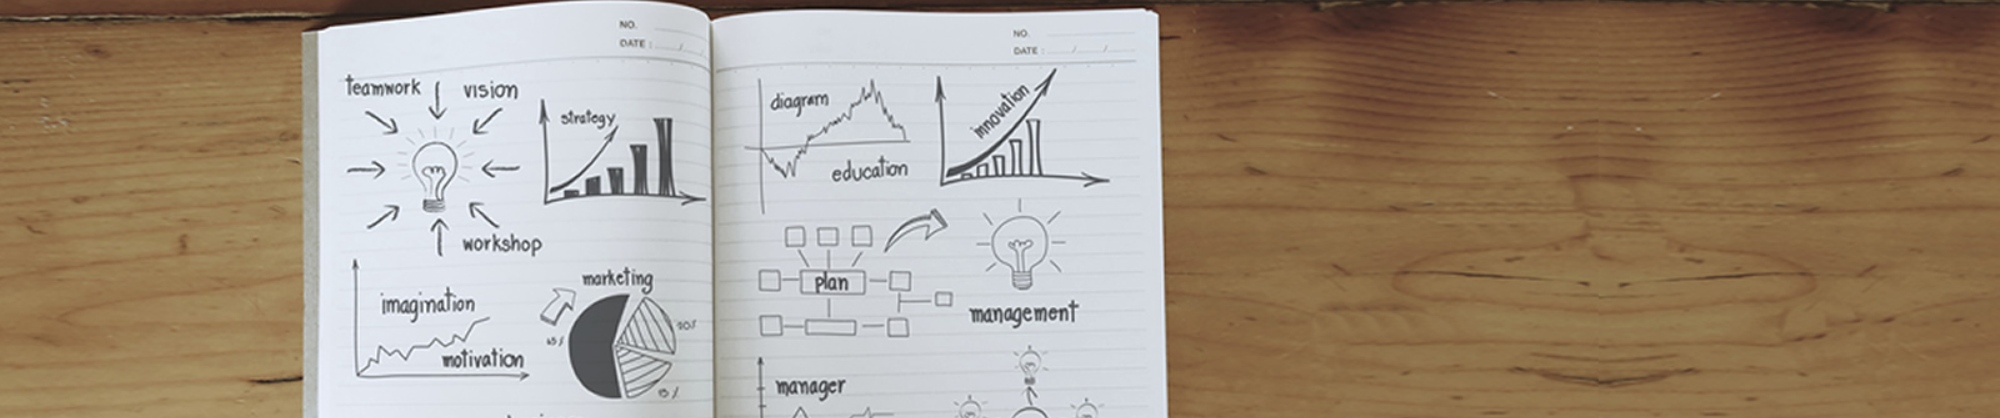 NO.
DATE : / /
teamwork
vision
strategy
workshop
imagination
motivation
marketing
NO.
DATE : / /
diagram
education
innovation
plan
management
manager